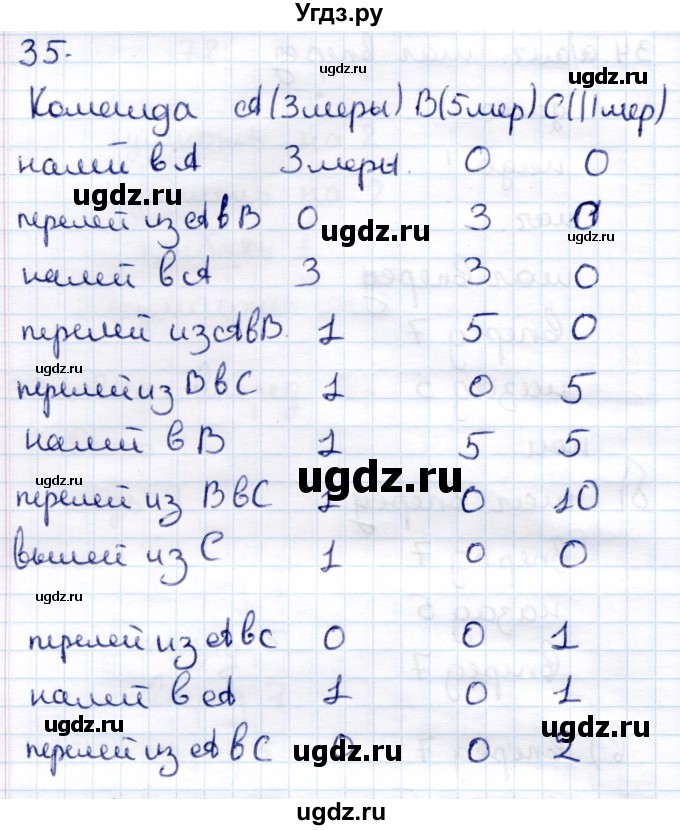 Угдз.ру
35.
Команда A (3 меры) B (5 мер) C (11 мер)
налей в A 3 меры. 0 0
перелей из A в B 0 3 0
налей в A 3 3 0
перелей из A в B. 1 5 0
перелей из B в C 1 0 5
налей в B 1 5 5
перелей из B в C 1 0 10
вылей из C 1 0 0
перелей из A в C 0 0 1
налей в A 1 0 1
перелей из A в C 0 0 2
ugdz.ru
ugdz.ru
ugdz.ru
ugdz.ru
ugdz.ru
ugdz.ru
ugdz.ru
ugdz.ru
ugdz.ru
ugdz.ru
ugdz.ru
ugdz.ru
ugdz.ru
ugdz.ru